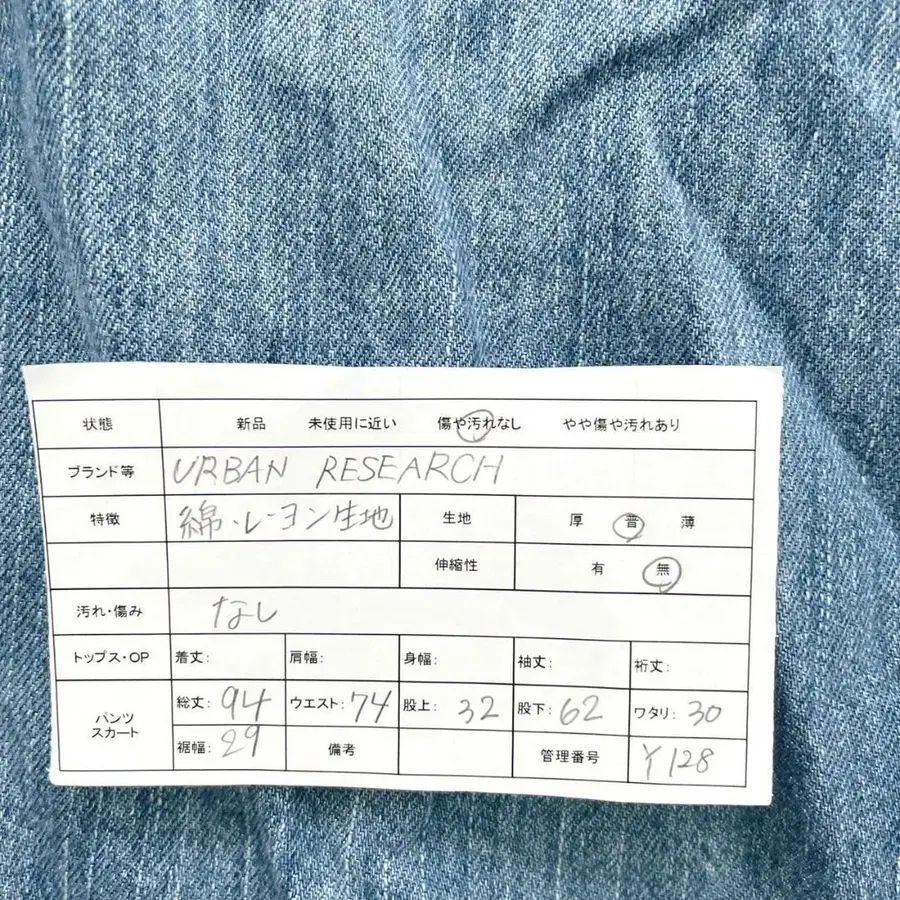 状態 新品 未使用に近い 傷や汚れなし やや傷や汚れあり
ブランド等 URBAN RESEARCH
特徴 綿・レーヨン生地 生地 厚 普 薄
伸縮性 有 無
汚れ・傷み なし
トップス・OP 着丈: 肩幅: 身幅: 袖丈: 裄丈:
パンツ スカート 総丈: 94 ウエスト: 74 股上: 32 股下: 62 ワタリ: 30
裾幅: 29 備考 管理番号 Y128